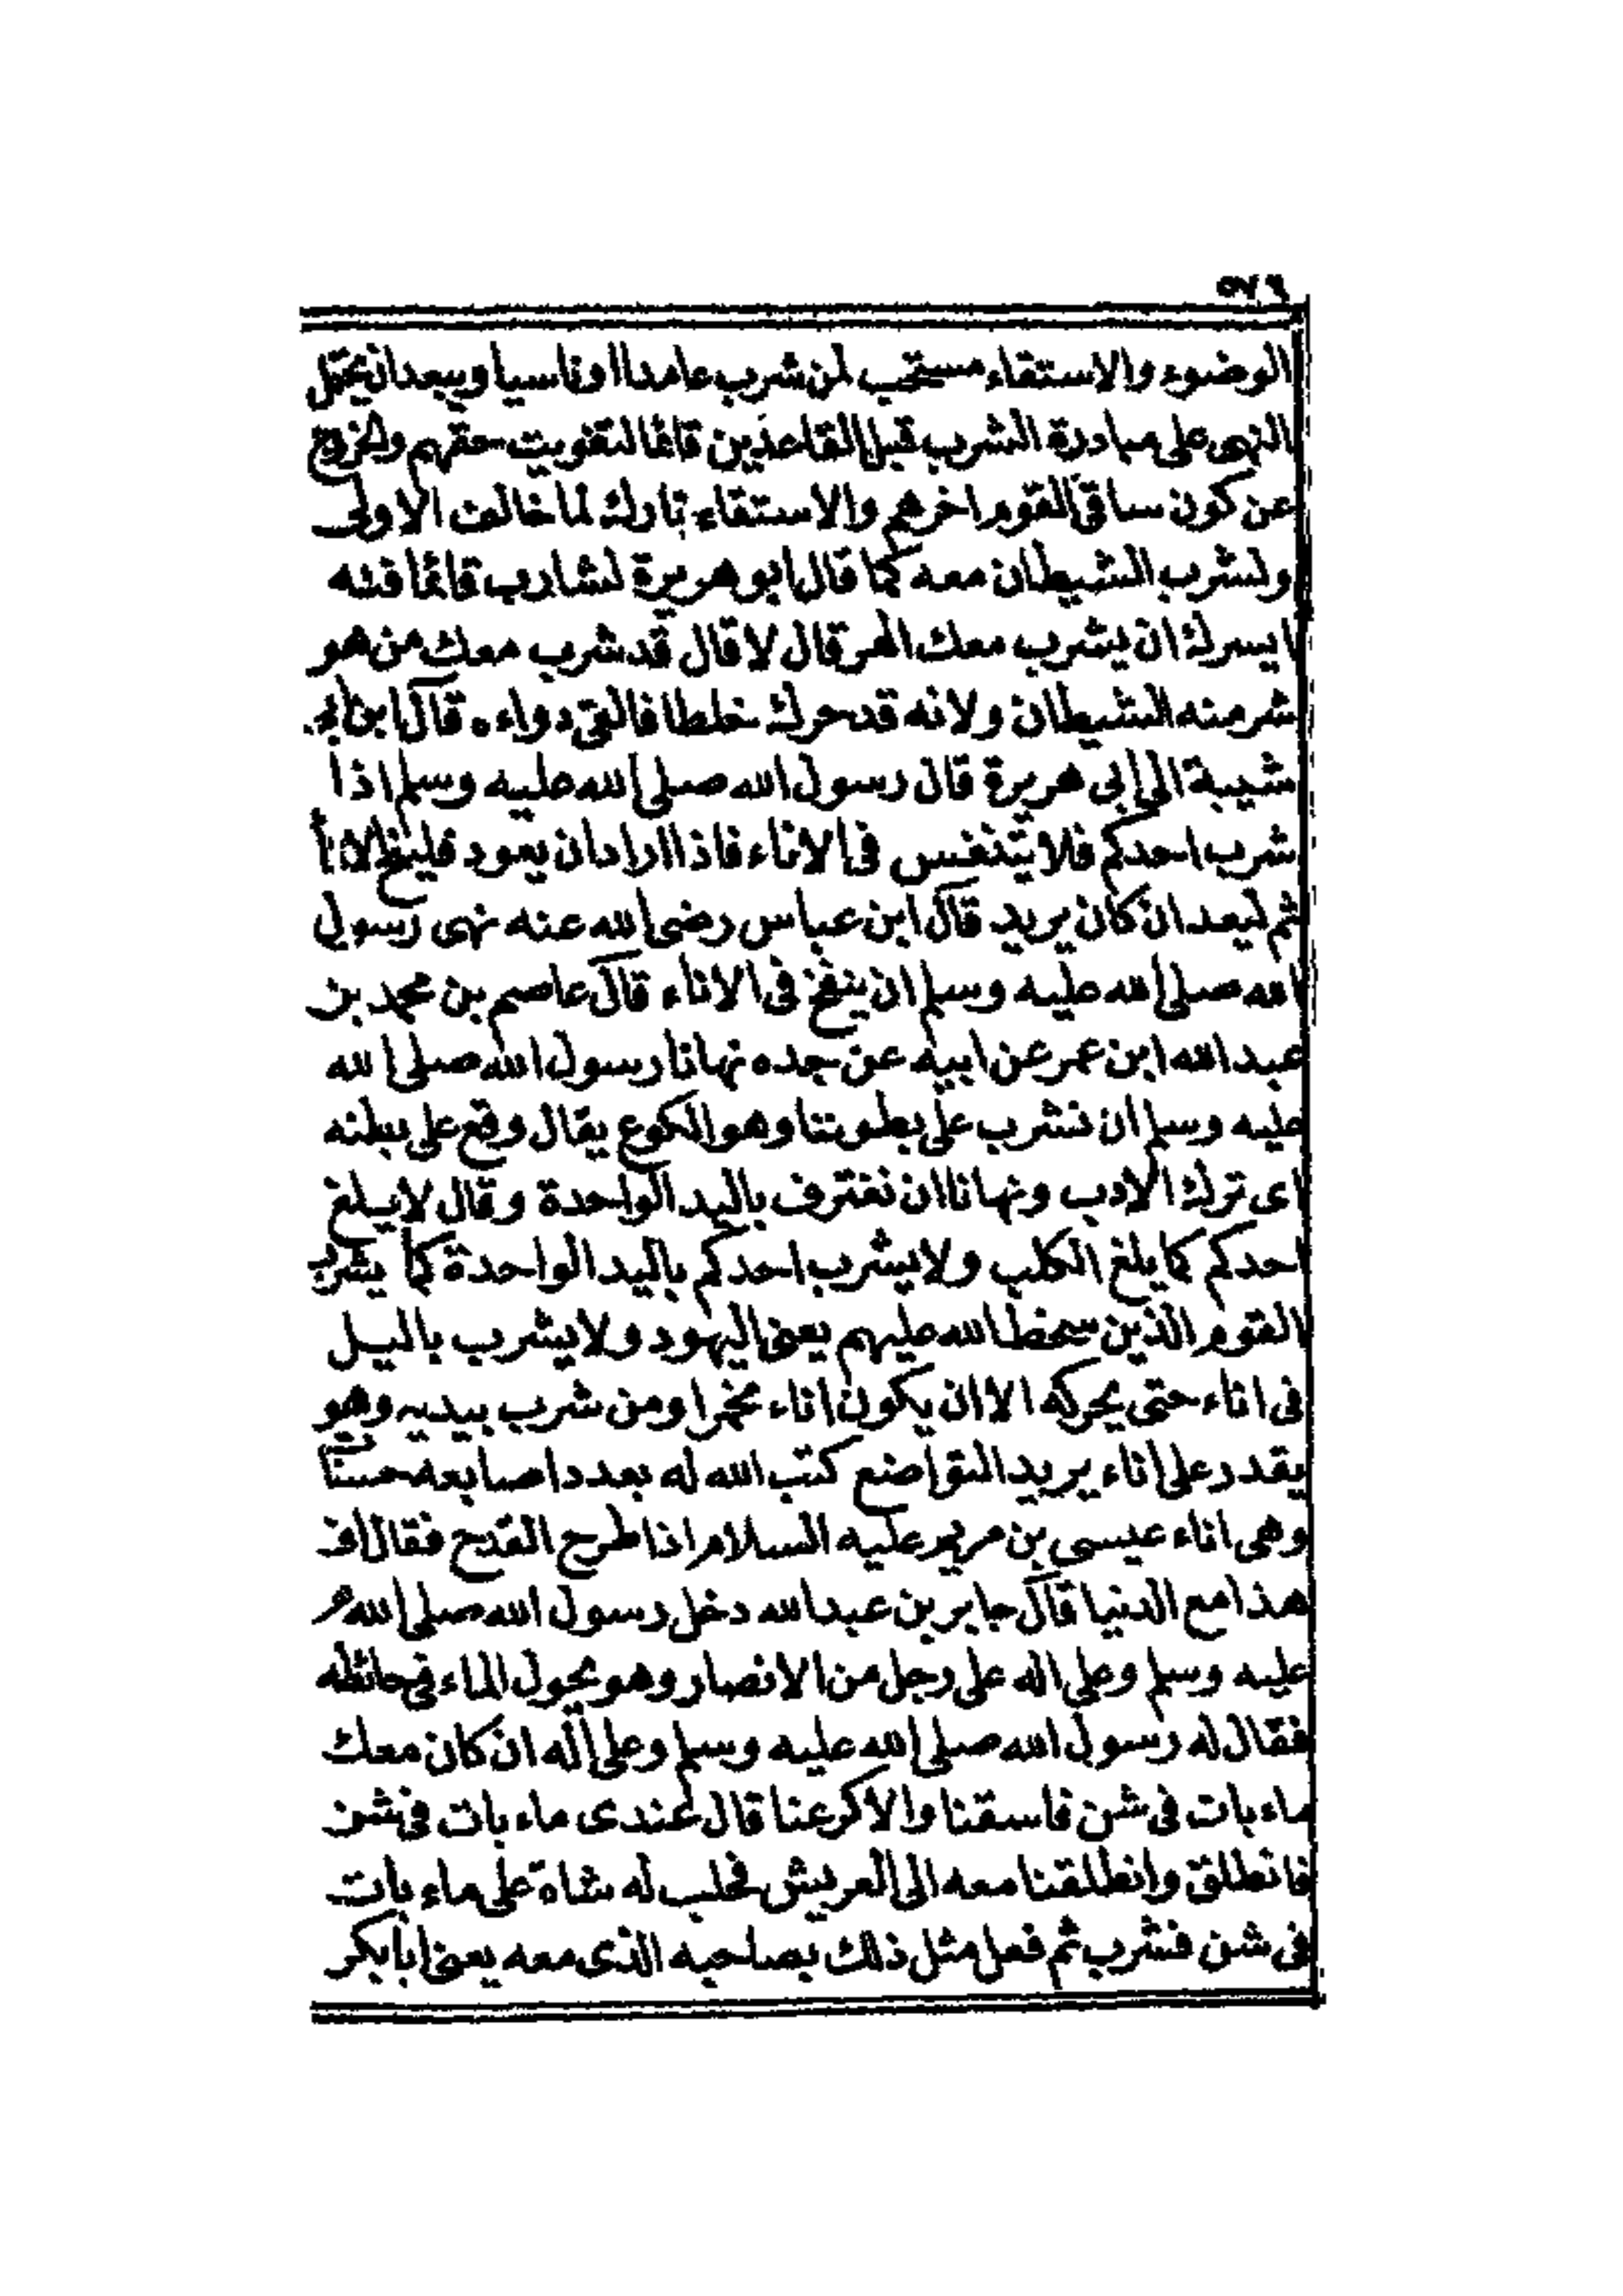 الوضوء والاستقاء مستحب لمن شرب عامدا اوناسيا ويبعد ان يحمل
النهى على مبادرة الشرب قبل القاعدين قائما لتفويت حقهم والخروج
عن كون ساقى القوم اخرهم والاستقاء تارك لما خالف الاولى
ولشرب الشيطان معه كما قال ابو هريرة لشارب قائما فئه
ايسرك ان يشرب معك الهر قال لا قال قد شرب معك من هو
شر منه الشيطان ولانه قد حرك خلطا فالقئ دواءه قال ابن ابى
شيبة الى ابى هريرة قال رسول الله صلى الله عليه وسلم اذا
شرب احدكم فلا يتنفس فى الاناء فاذا اراد ان يعود فلينح الانا
ثم ليعد ان كان يريد قال ابن عباس رضى الله عنه نهى رسول
الله صلى الله عليه وسلم ان ينفخ فى الاناء قال عاصم بن محمد بن
عبد الله ابن عمر عن ابيه عن جده نهانا رسول الله صلى الله
عليه وسلم ان نشرب على بطوننا وهو الكوع يقال وقع على بطنه
اى ترك الادب ونهانا ان نغترف باليد الواحدة وقال لايلغ
احدكم كما يلغ الكلب ولا يشرب احدكم باليد الواحدة كما يشرب
القوم الذين سخط الله عليهم يعنى اليهود ولا يشرب باليل
فى اناء حتى يحركه الا ان يكون اناء مخمرا ومن شرب بيديه وهو
يقدر على اناء يريد التواضع كتب الله له بعدد اصابعه حسنات
وهى اناء عيسى بن مريم عليه السلام اذا طرح القدح فقال اف
هذا مع الدنيا قال جابر بن عبد الله دخل رسول الله صلى الله
عليه وسلم وعلى اله على رجل من الانصار وهو يحول الماء فى حائطه
فقال له رسول الله صلى الله عليه وسلم وعلى اله ان كان معك
ماء بات فى شن فاسقنا والا كرعنا قال عندى ماء بات فى شن
فانطلق وانطلقنا معه الى العريش فحلب له شاة على ماء بات
فى شن فشرب ثم فعل مثل ذلك بصاحبه الذى معه يعنى ابا بكر